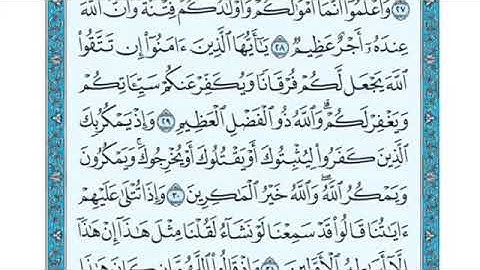 ﴿٢٧﴾ وَٱعْلَمُوٓا۟ أَنَّمَآ أَمْوَٰلُكُمْ وَأَوْلَٰدُكُمْ فِتْنَةٌ وَأَنَّ ٱللَّهَ
عِندَهُۥٓ أَجْرٌ عَظِيمٌ ﴿٢٨﴾ يَٰٓأَيُّهَا ٱلَّذِينَ ءَامَنُوٓا۟ إِن تَتَّقُوا۟
ٱللَّهَ يَجْعَل لَّكُمْ فُرْقَانًا وَيُكَفِّرْ عَنكُمْ سَيِّـَٔاتِكُمْ
وَيَغْفِرْ لَكُمْ ۗ وَٱللَّهُ ذُو ٱلْفَضْلِ ٱلْعَظِيمِ ﴿٢٩﴾ وَإِذْ يَمْكُرُ بِكَ
ٱلَّذِينَ كَفَرُوا۟ لِيُثْبِتُوكَ أَوْ يَقْتُلُوكَ أَوْ يُخْرِجُوكَ ۚ وَيَمْكُرُونَ
وَيَمْكُرُ ٱللَّهُ ۖ وَٱللَّهُ خَيْرُ ٱلْمَٰكِرِينَ ﴿٣٠﴾ وَإِذَا تُتْلَىٰ عَلَيْهِمْ
ءَايَٰتُنَا قَالُوا۟ قَدْ سَمِعْنَا لَوْ نَشَآءُ لَقُلْنَا مِثْلَ هَٰذَآ ۙ إِنْ هَٰذَآ
إِلَّآ أَسَٰطِيرُ ٱلْأَوَّلِينَ ﴿٣١﴾ وَإِذْ قَالُوا۟ ٱللَّهُمَّ إِن كَانَ هَٰذَا